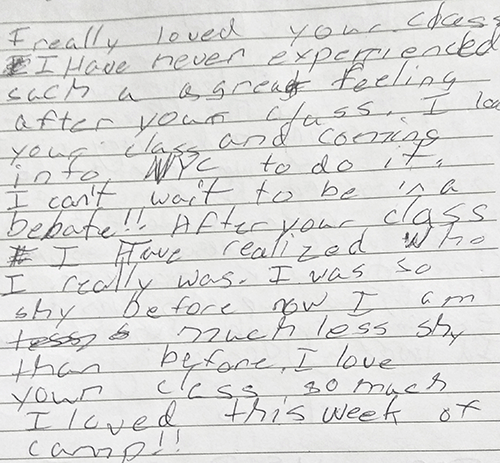 I really loved your class
I Have never experienced
such a a great feeling
after your class. I
your class and coming
into NYC to do it.
I can't wait to be in a
bebate!! After your class
I Have realized who
I really was. I was so
shy before now I am
much less shy
than before. I love
your class so much
I loved this week of
camp!!